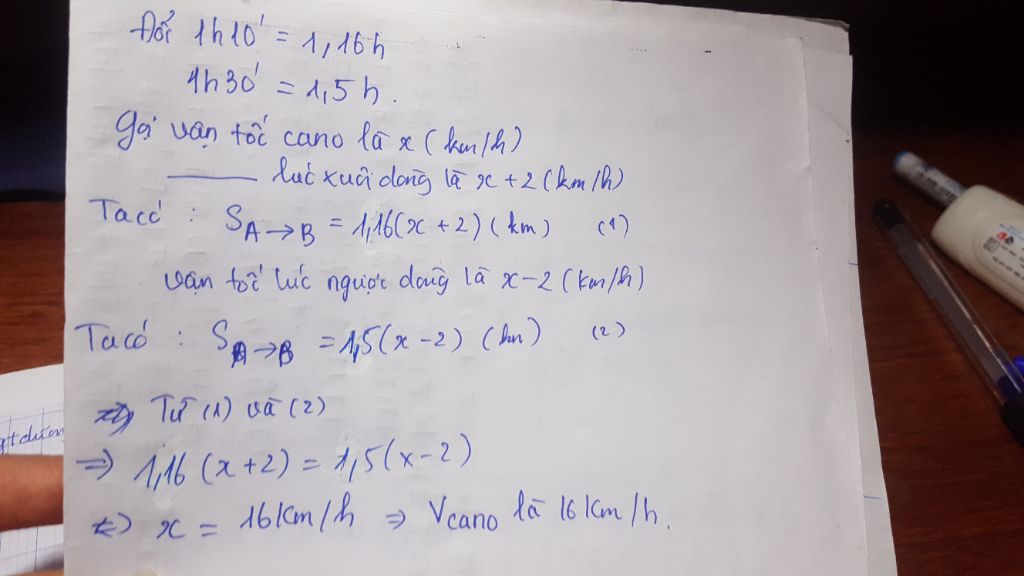 Đổi 1h10' = 1,16h
1h30' = 1,5h.
Gọi vận tốc cano là x (km/h)
——— lúc xuôi dòng là x+2 (km/h)
Ta có : S A→B = 1,16(x+2) (km) (1)
vận tốc lúc ngược dòng là x-2 (km/h)
Ta có : S A→B = 1,5(x-2) (km) (2)
=> Từ (1) và (2)
=> 1,16 (x+2) = 1,5(x-2)
<=> x = 16km/h => Vcano là 16km/h.